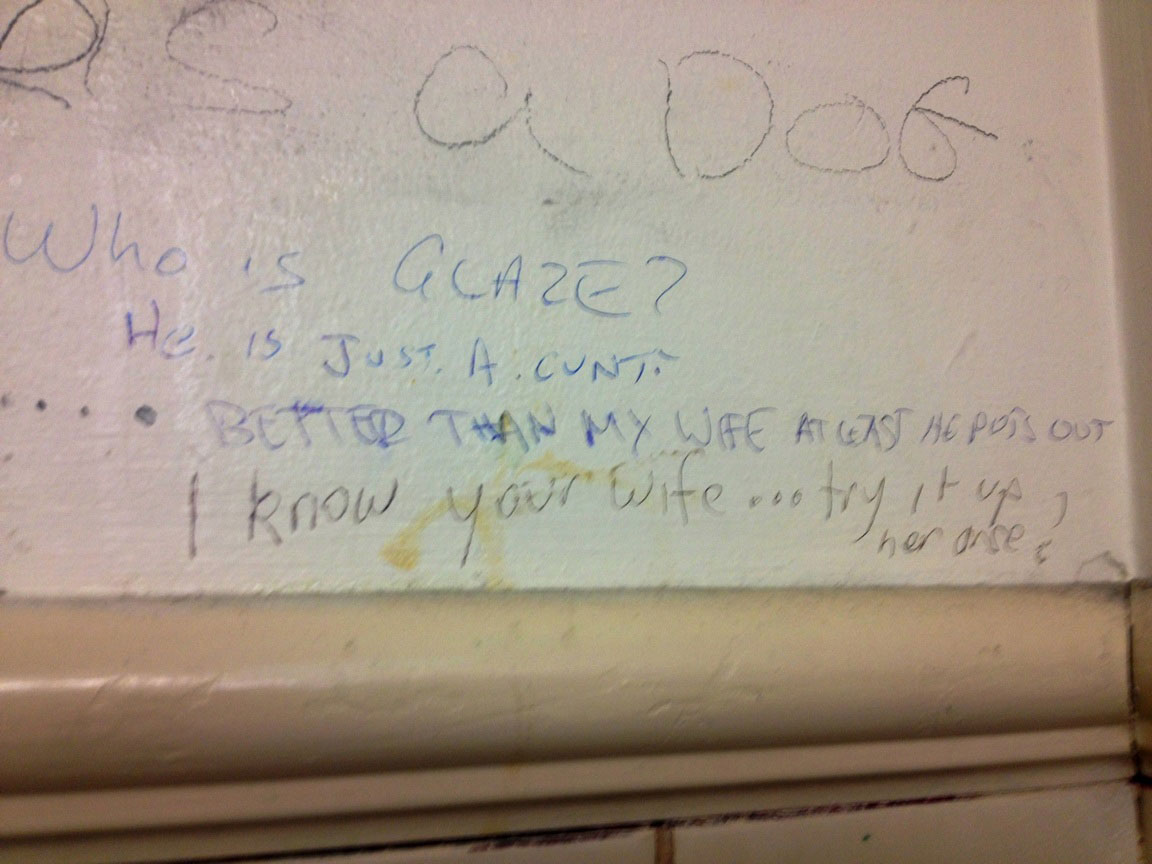 IS a DOG
Who is GLAZE?
He. is JUST. A. CUNT.
.... BETTER THAN MY WIFE AT LEAST HE PUTS OUT
I know your wife...try it up,
her arse.